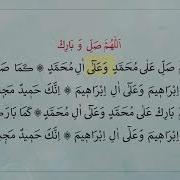 اَللّٰهُمَّ صَلِّ وَ بَارِكْ
صَلِّ عَلٰى مُحَمَّدٍ وَعَلٰٓى اٰلِ مُحَمَّدٍ ❋ كَمَا صَ
اِبْرَاهِيْمَ وَعَلٰٓى اٰلِ اِبْرَاهِيْمَ ❋ اِنَّكَ حَمِيْدٌ مَجِ
بَارِكْ عَلٰى مُحَمَّدٍ وَعَلٰٓى اٰلِ مُحَمَّدٍ ❋ كَمَا بَارَ
اِبْرَاهِيْمَ وَعَلٰٓى اٰلِ اِبْرَاهِيْمَ ❋ اِنَّكَ حَمِيْدٌ مَجِ